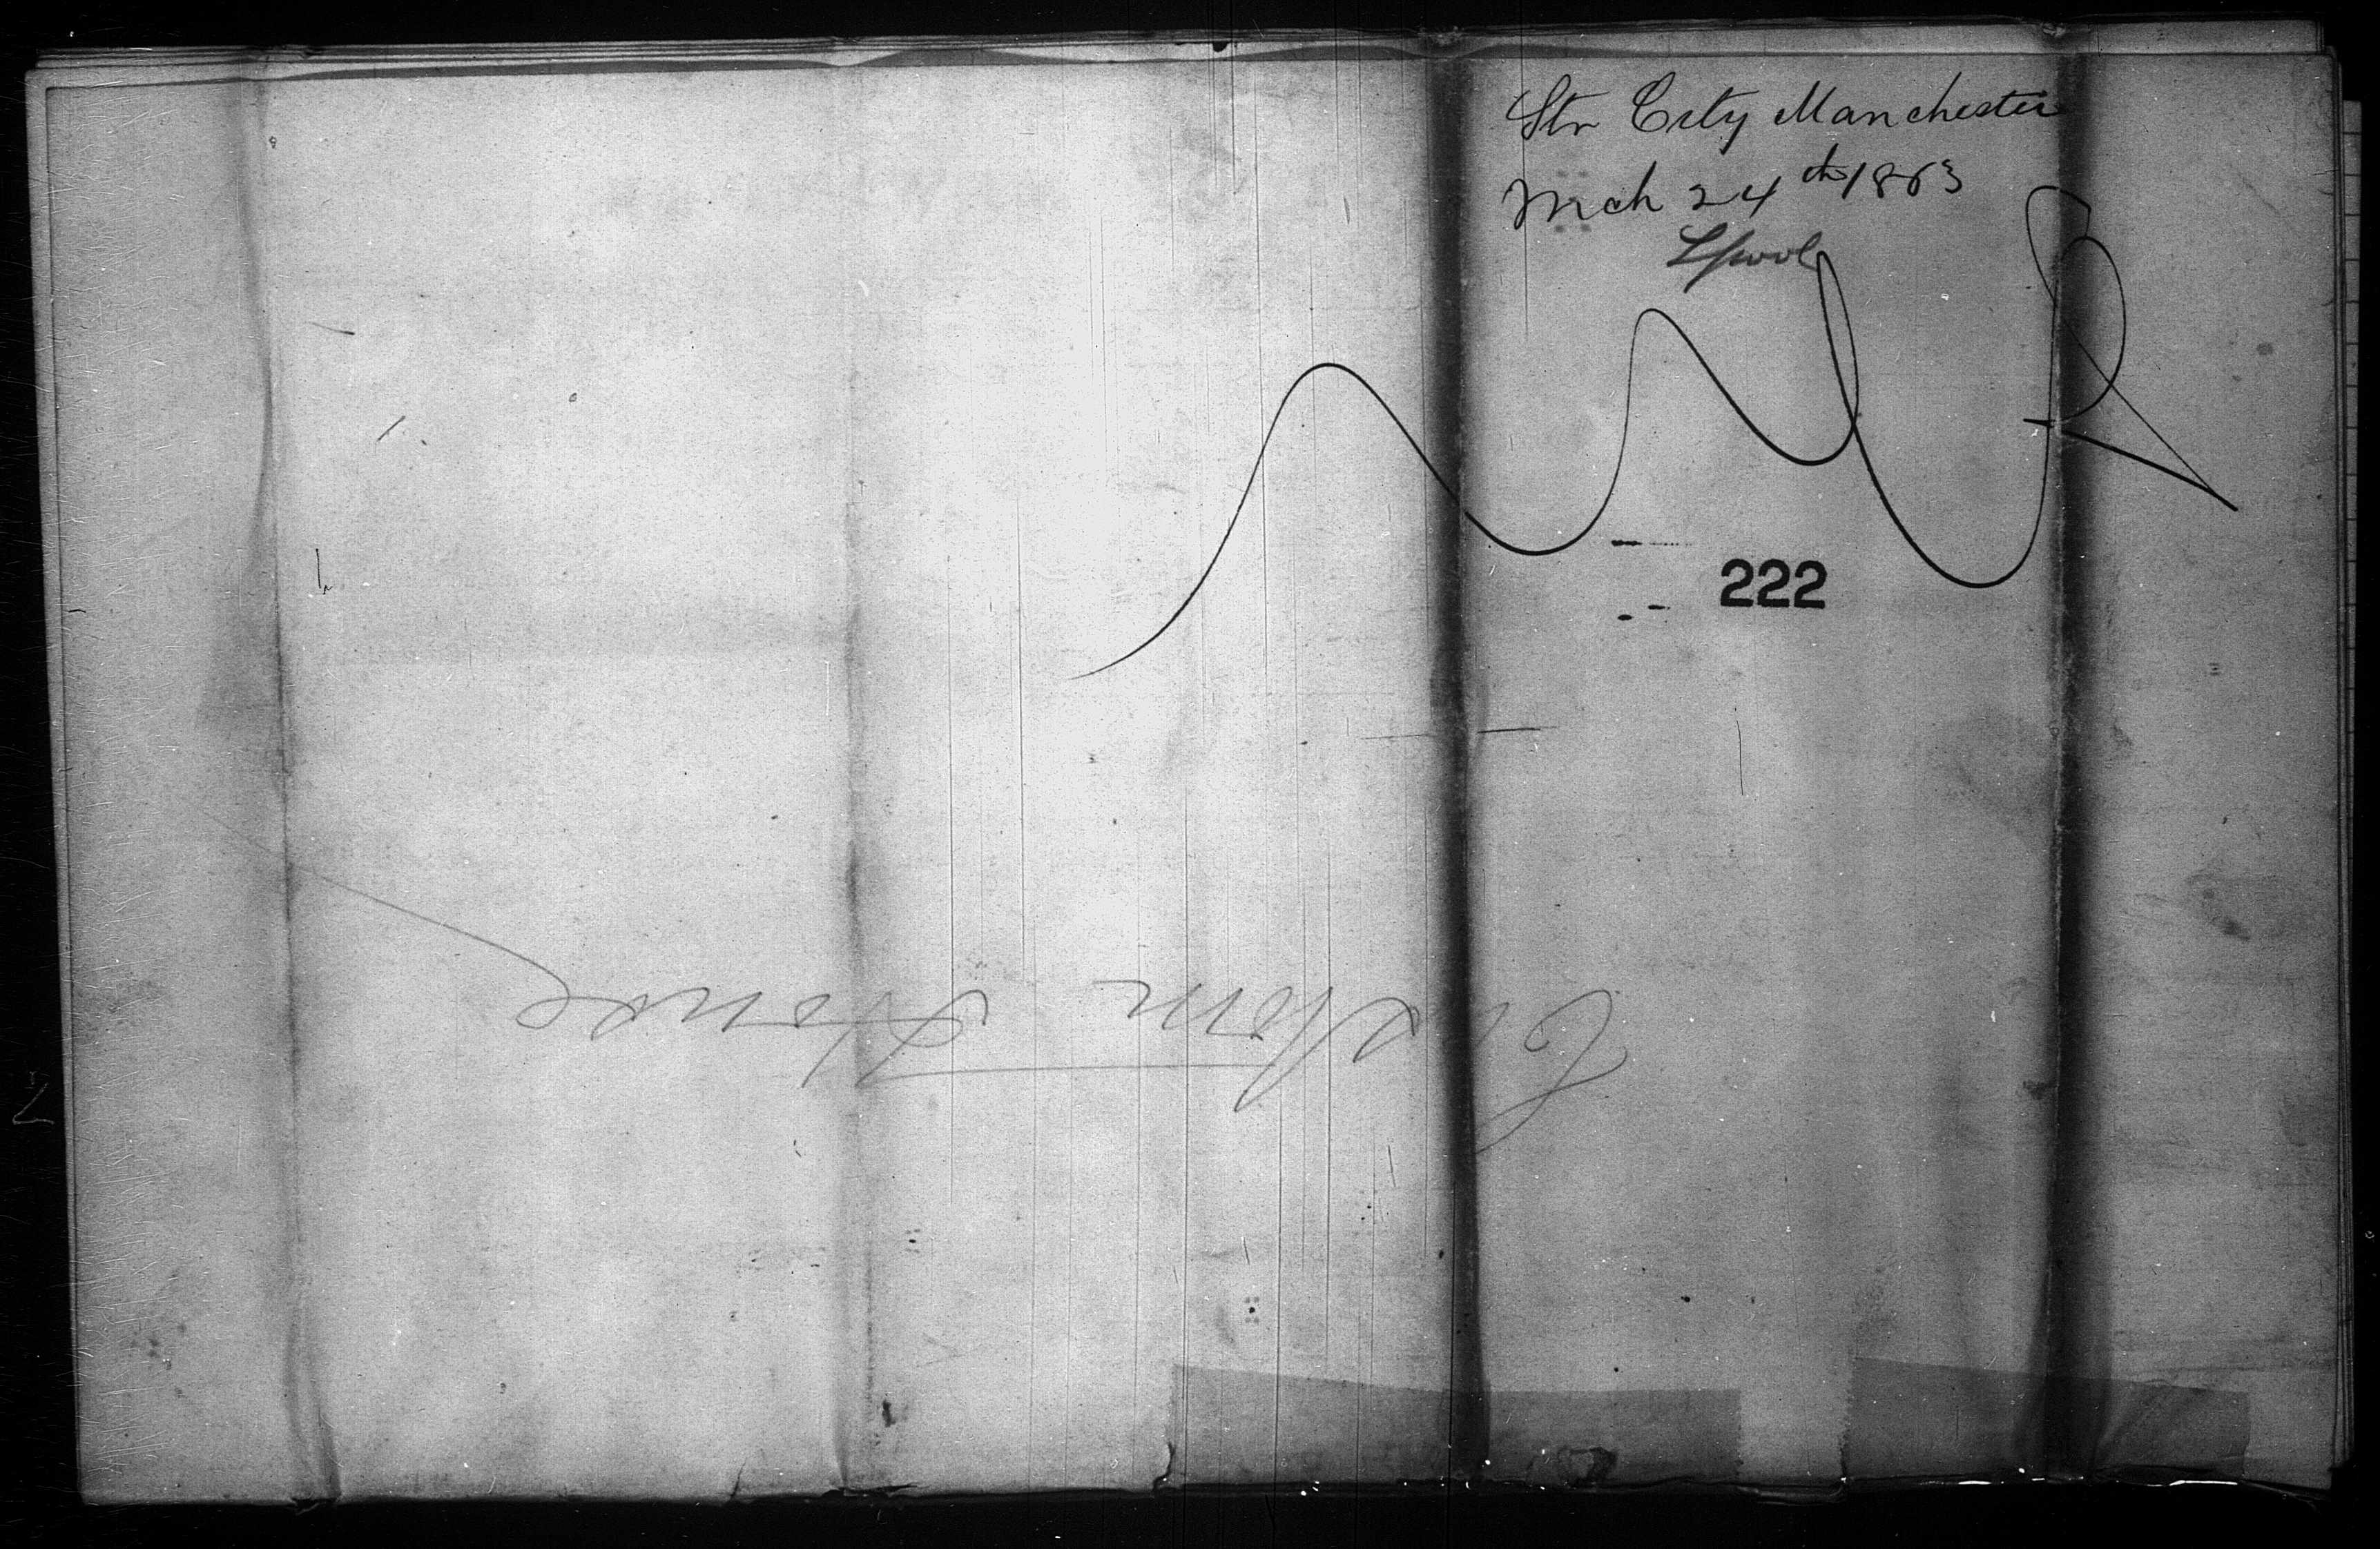 Str City Manchester
Mch 24th 1863
Lpool
222
Custom House